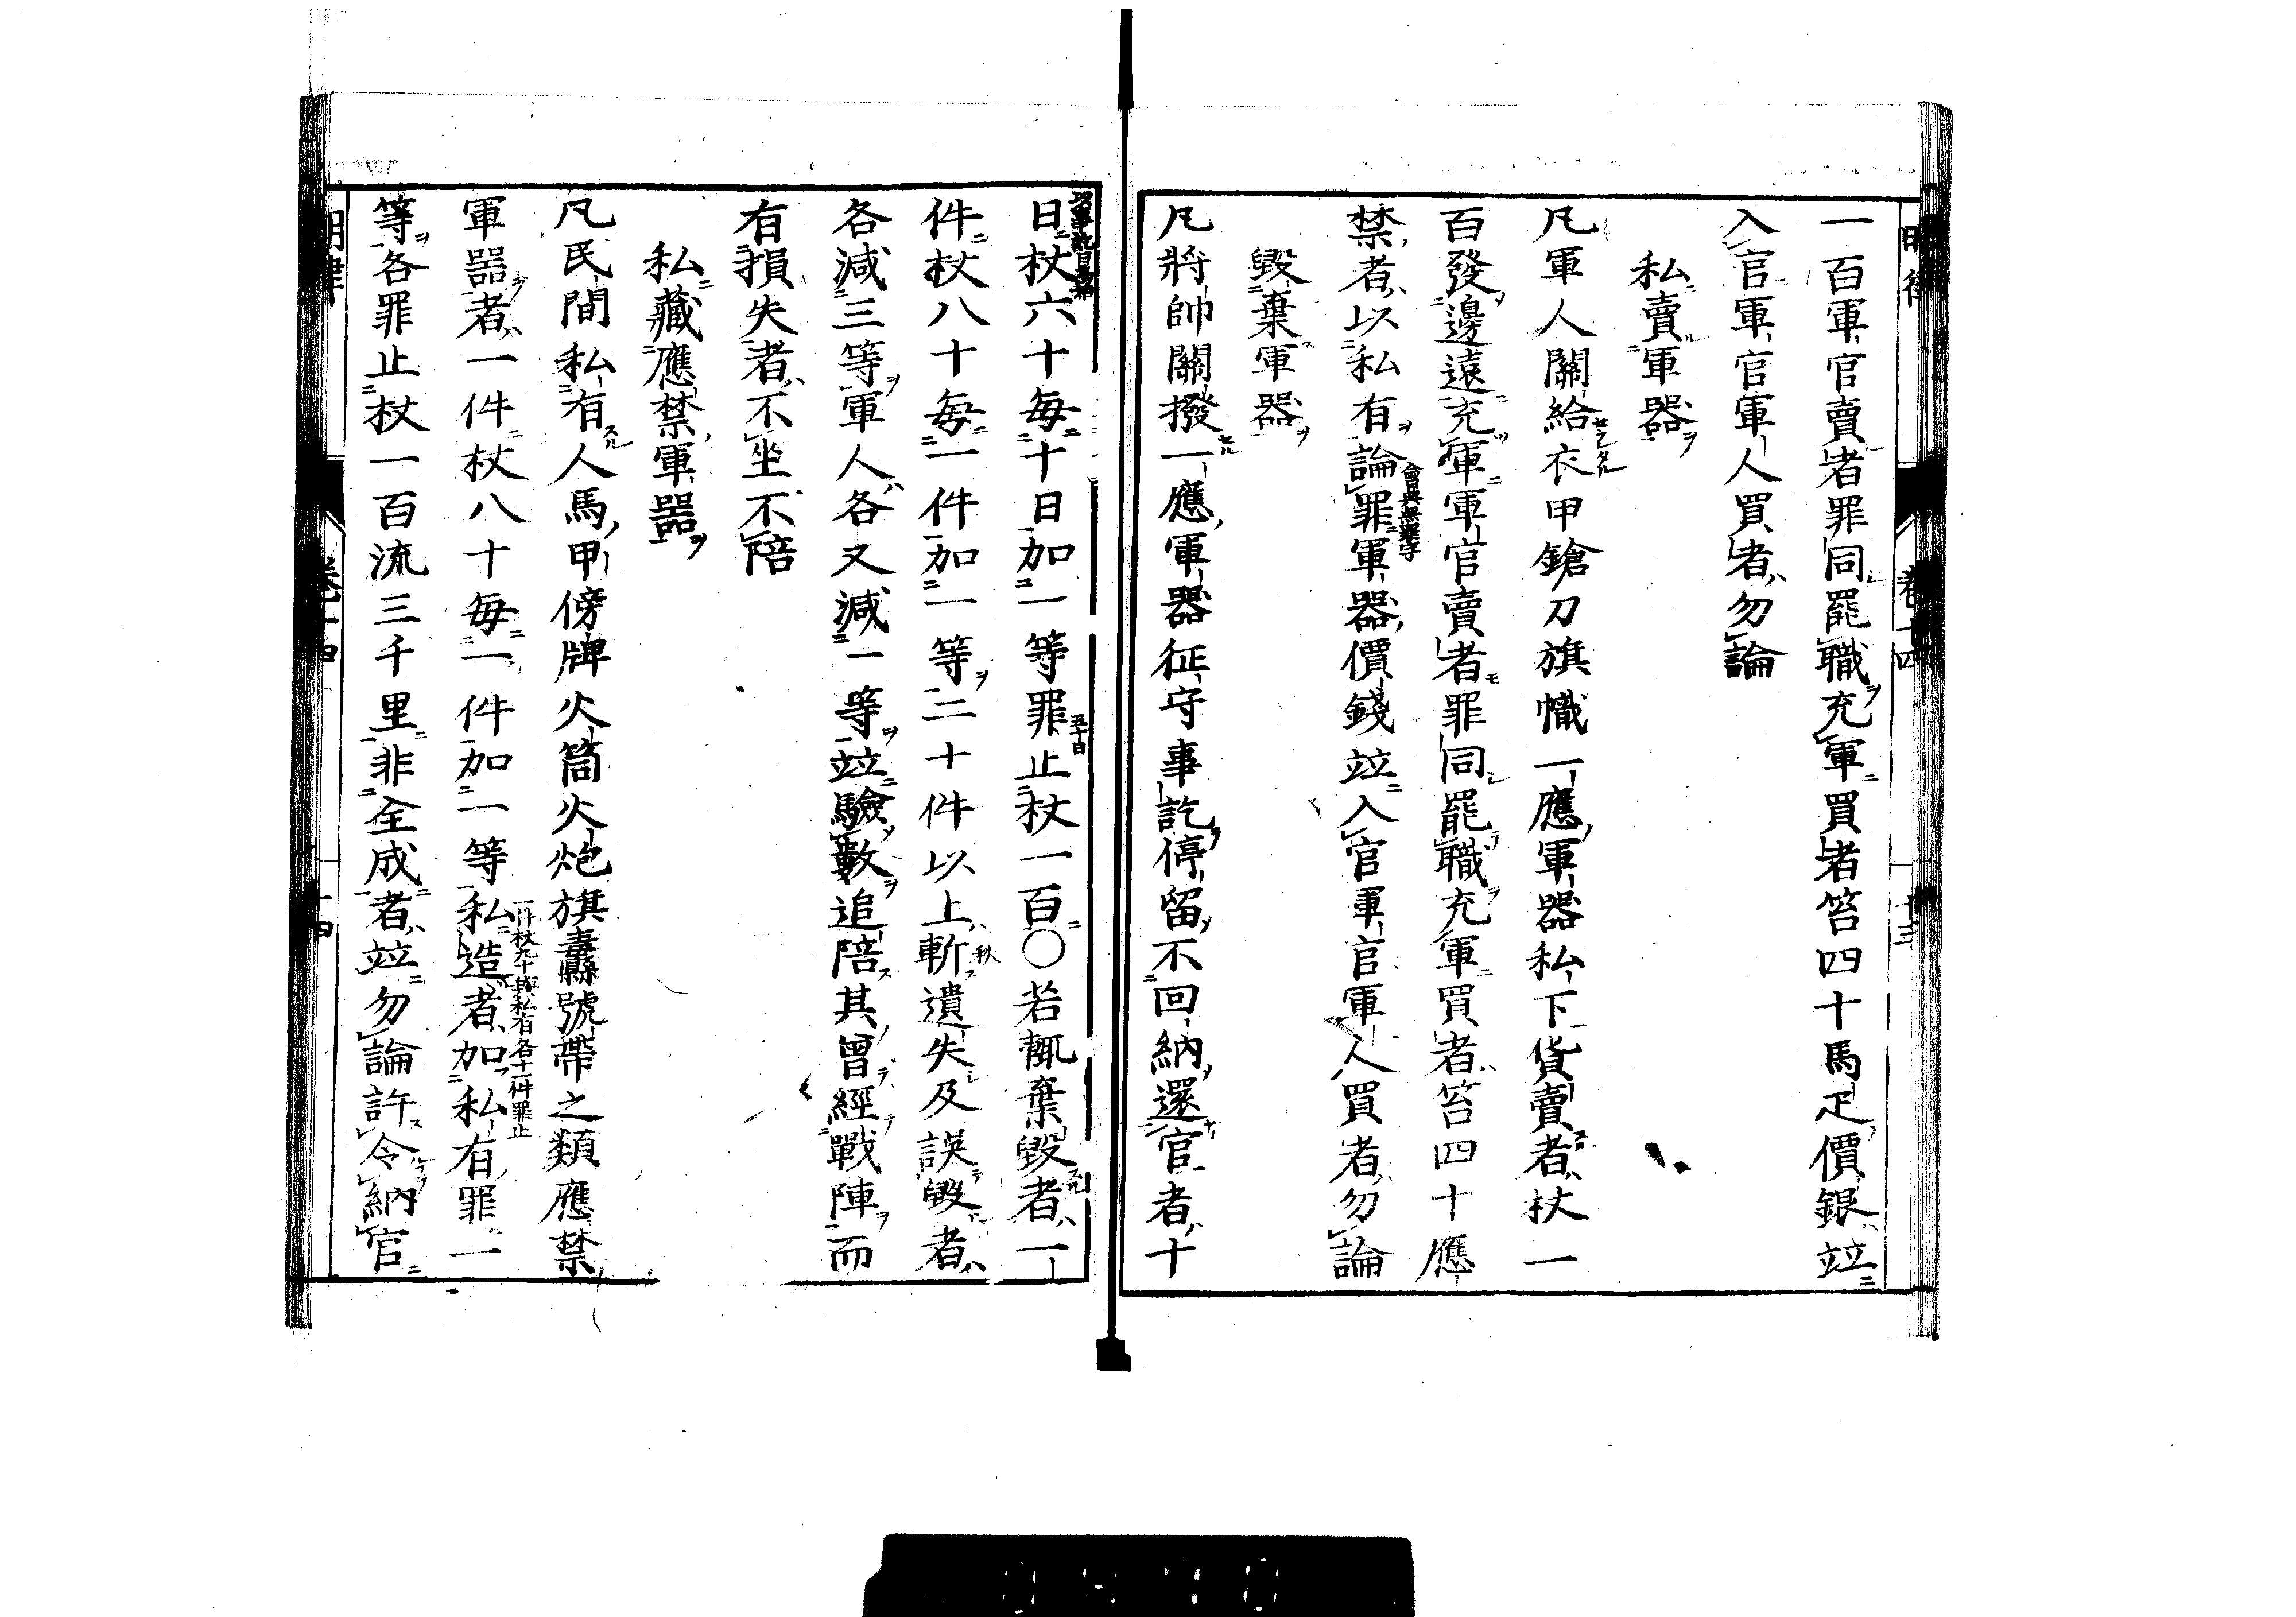 明律 卷十四 十三
一百軍官賣者罪同罷職充軍買者笞四十馬疋價銀竝
入官軍官軍人買者勿論
私賣軍器
凡軍人關給衣甲鎗刀旗幟一應軍器私下貨賣者杖一
百發邊遠充軍軍官賣者罪同罷職充軍買者笞四十應
禁者以私有論罪軍器價錢竝入官軍官軍人買者勿論
會典無罪字
毀棄軍器
凡將帥關撥一應軍器征守事訖停留不回納還官者十
日杖六十每十日加一等罪止杖一百○若輒棄毀者一
五十日
件杖八十每一件加一等二十件以上斬遺失及誤毀者
秋
各減三等軍人各又減一等竝驗數追陪其曾經戰陣而
有損失者不坐不陪
私藏應禁軍器
凡民間私有人馬甲傍牌火筒火炮旗纛號帶之類應禁
軍器者一件杖八十每一件加一等私造者加私有罪一
一件杖九十與私有各十一件罪止
等各罪止杖一百流三千里非全成者竝勿論許令納官
明律 卷十四 十四